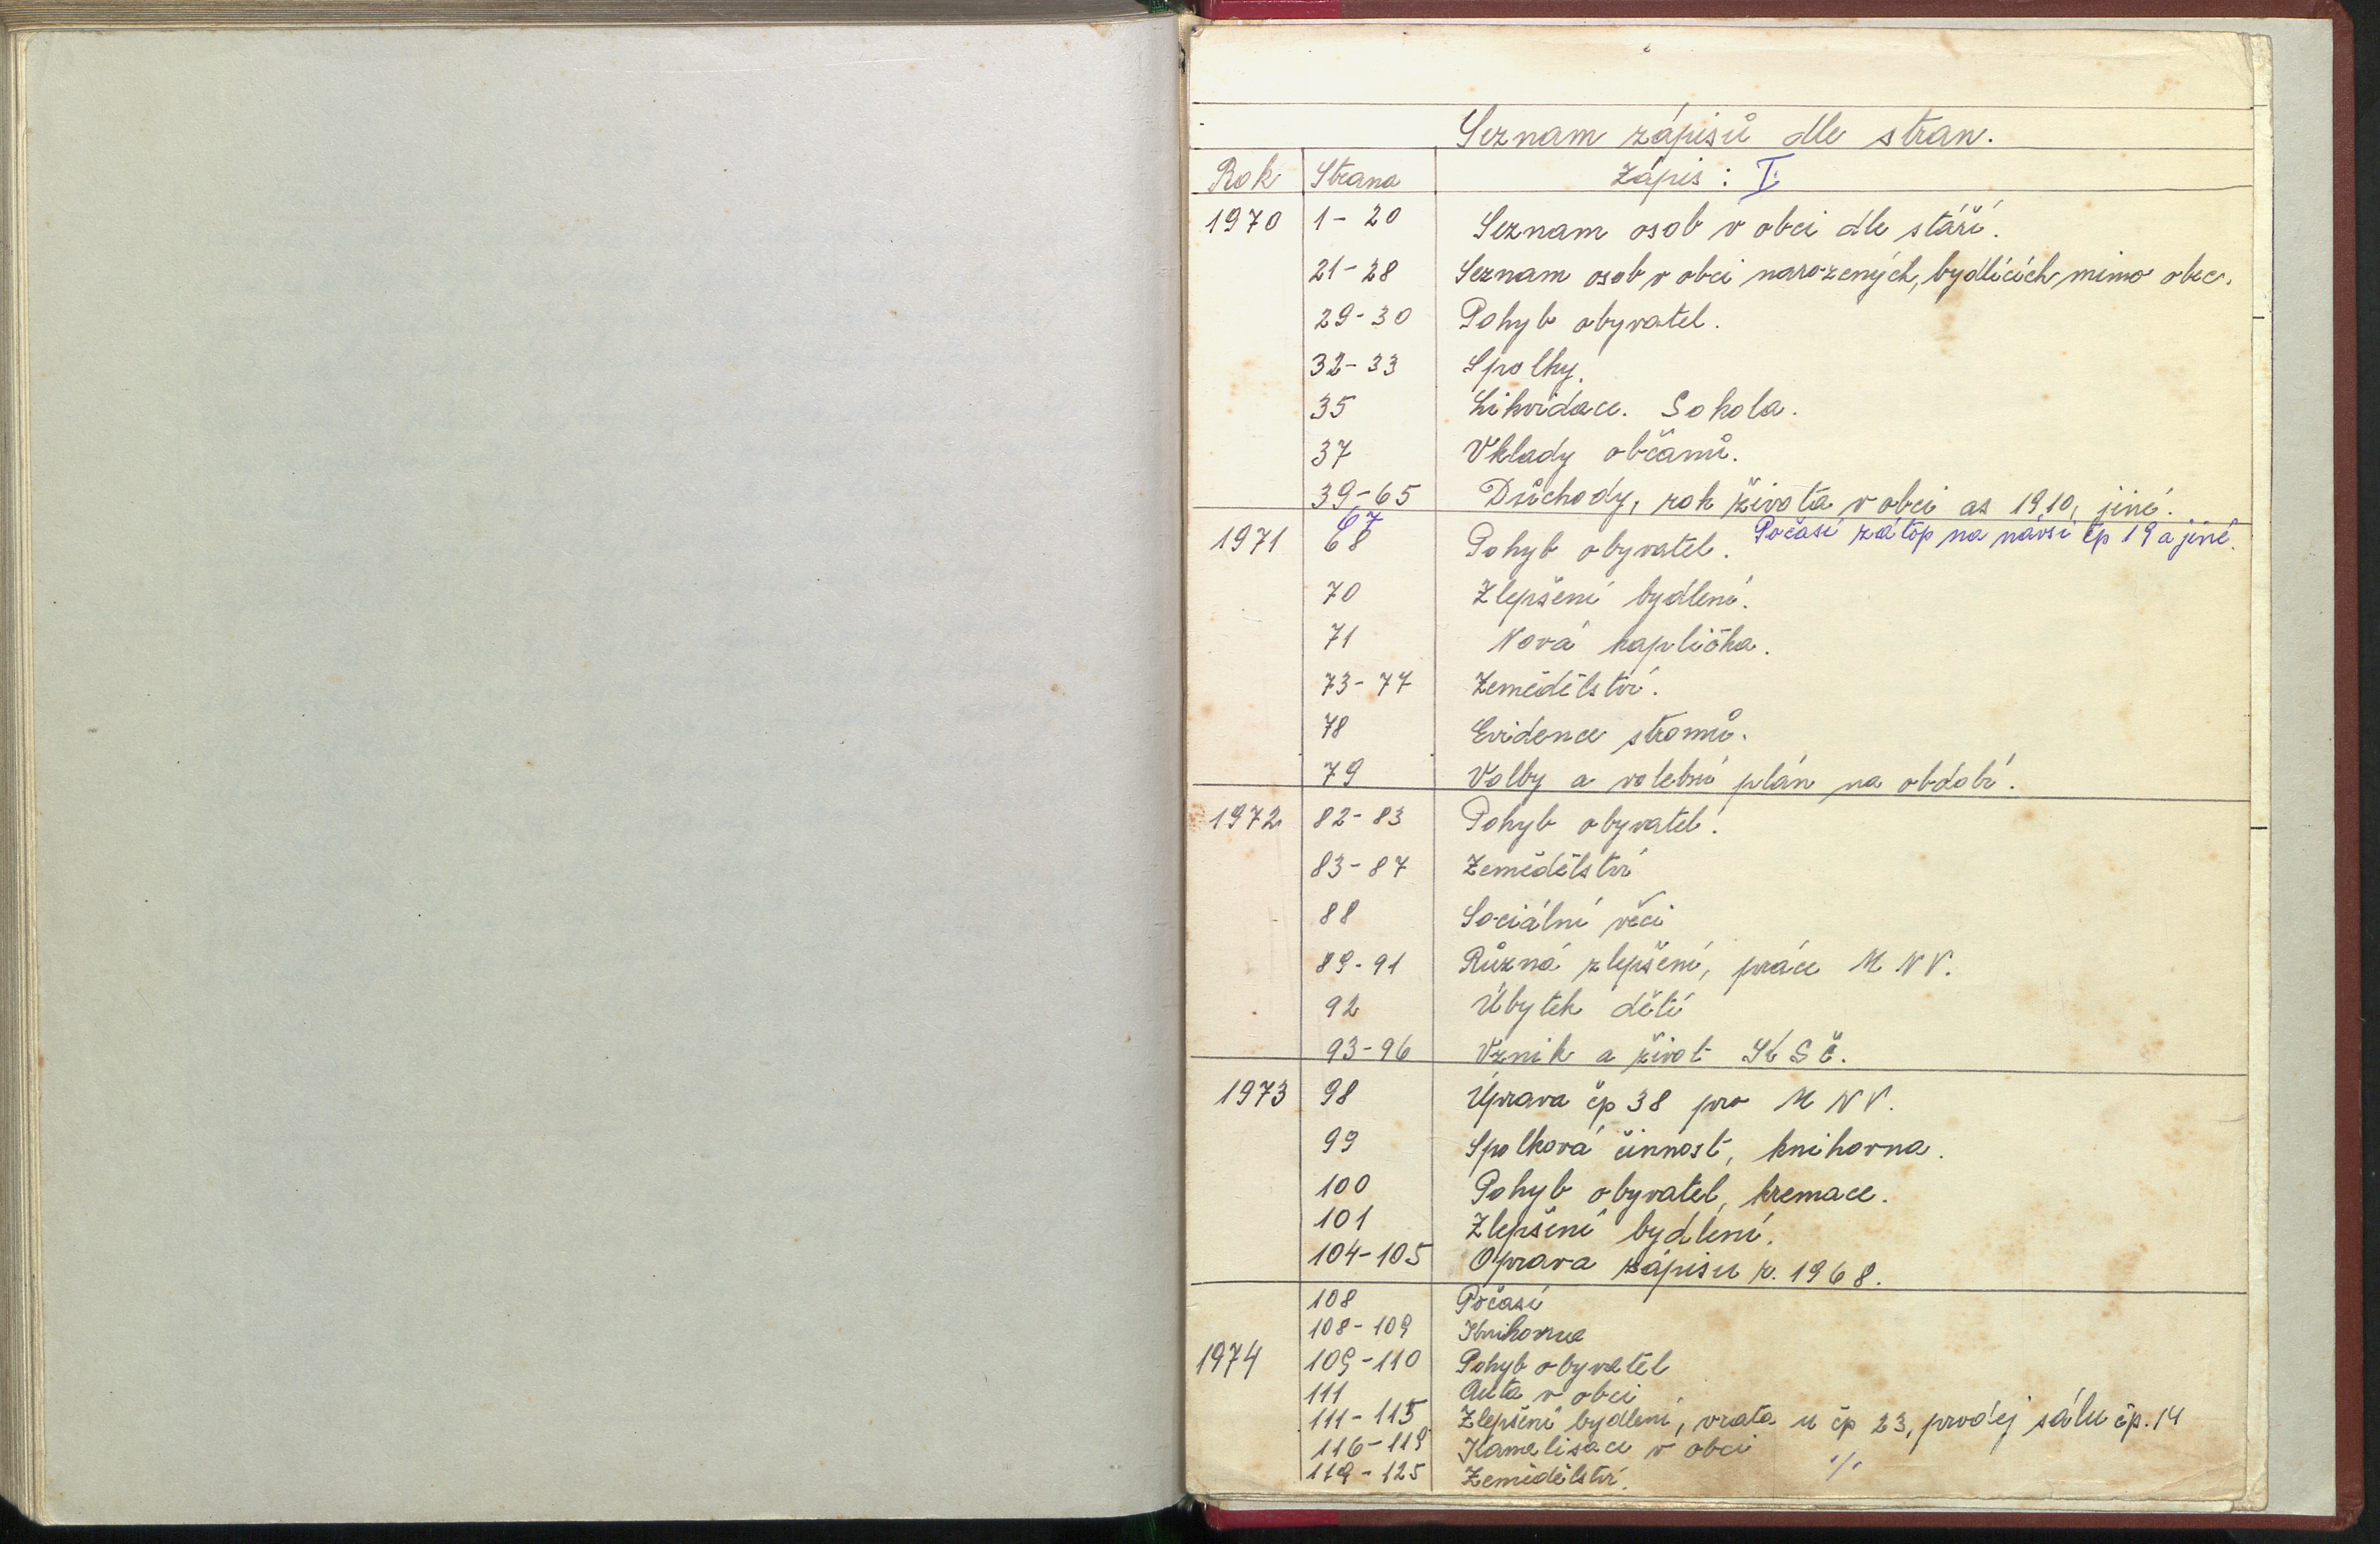 Seznam zápisů dle stran.
Rok Strana Zápis: I.
1970 1-20 Seznam osob v obci dle stáří.
21-28 Seznam osob v obci narozených, bydlících mimo obec.
29-30 Pohyb obyvatel.
32-33 Spolky.
35 Likvidace. Sokola.
37 Vklady občanů.
39-65 Důchody, rok života v obci as 1910, jiné.
67 Počasí zátop na návsi čp 19 a jiné.
1971 68 Pohyb obyvatel.
70 Zlepšení bydlení.
71 Nová kaplička.
73-77 Zemědělství.
78 Evidence stromů.
79 Volby a volební plán na období.
1972 82-83 Pohyb obyvatel.
83-87 Zemědělství
88 Sociální věci
89-91 Různá zlepšení, práce MNV.
92 Úbytek dětí
93-96 Vznik a život KSČ.
1973 98 Úprava čp 38 pro MNV.
99 Spolková činnost, knihovna.
100 Pohyb obyvatel, kremace.
101 Zlepšení bydlení.
104-105 Oprava zápisu r. 1968.
108 Počasí
108-109 Knihovna
1974 109-110 Pohyb obyvatel
111 Auta v obci
111-115 Zlepšení bydlení, vrata u čp 23, prodej sálu čp. 14
116-119 Kanalisace v obci
119-125 Zemědělství. ./.